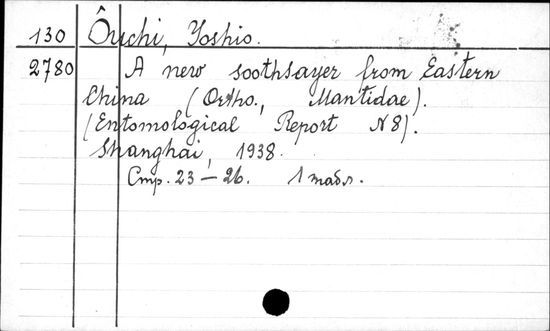 130 Ôuchi, Yoshio.
2780 A new soothsayer from Eastern
China (Ortho., Mantidae).
(Entomological Report N 8).
Shanghai, 1938.
Стр. 23 – 26. 1 табл.